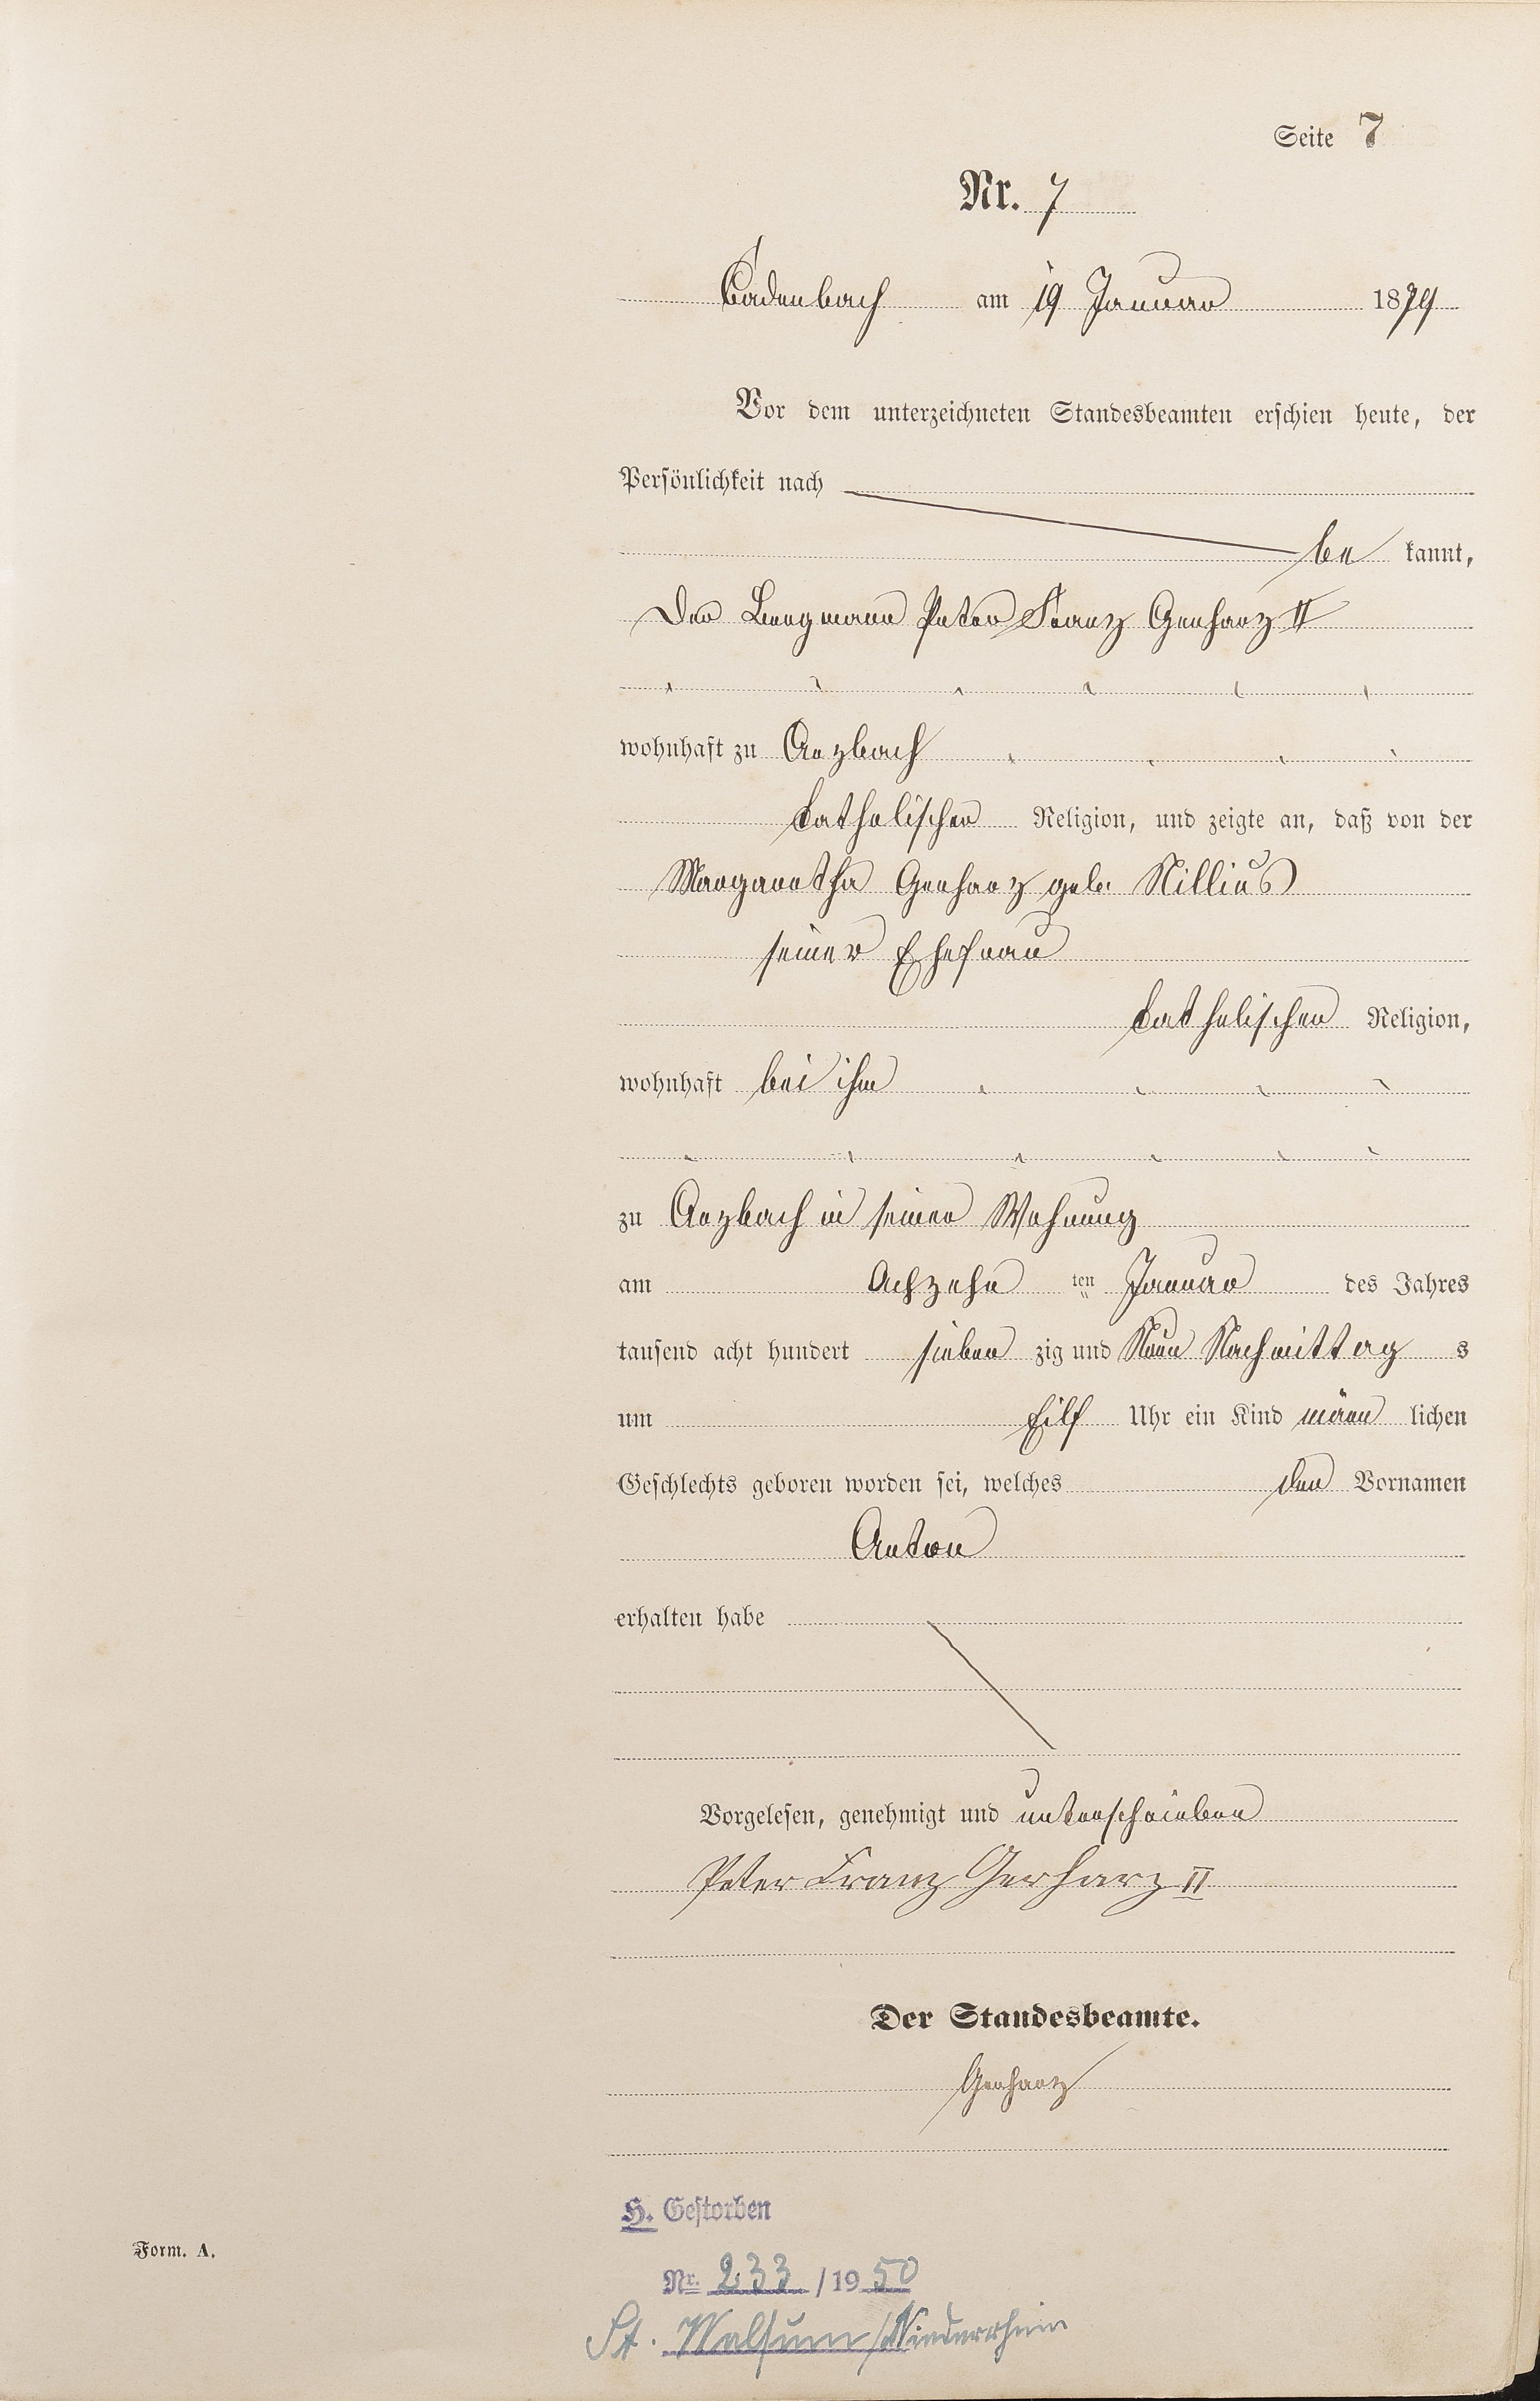 Seite 7
Nr. 7
Cadenbach am 19 Januar 1879
Vor dem unterzeichneten Standesbeamten erschien heute, der
Persönlichkeit nach
be kannt,
Der Bergmann Peter Franz Gerharz II
wohnhaft zu Arzbach
katholischer Religion, und zeigte an, daß von der
Margaretha Gerharz geb. Nillius
seiner Ehefrau
katholischer Religion,
wohnhaft bei ihm
zu Arzbach in seiner Wohnung
am Achzehn ten Januar des Jahres
tausend acht hundert sieben zig und Neun Nachmittag s
um Eilf Uhr ein Kind männ lichen
Geschlechts geboren worden sei, welches den Vornamen
Anton
erhalten habe
Vorgelesen, genehmigt und unterschrieben
Peter Franz Gerharz II
Der Standesbeamte.
Gerharz
H. Gestorben
Form. A.
Nr. 233 / 1950
St. Walsum/Niederrhein